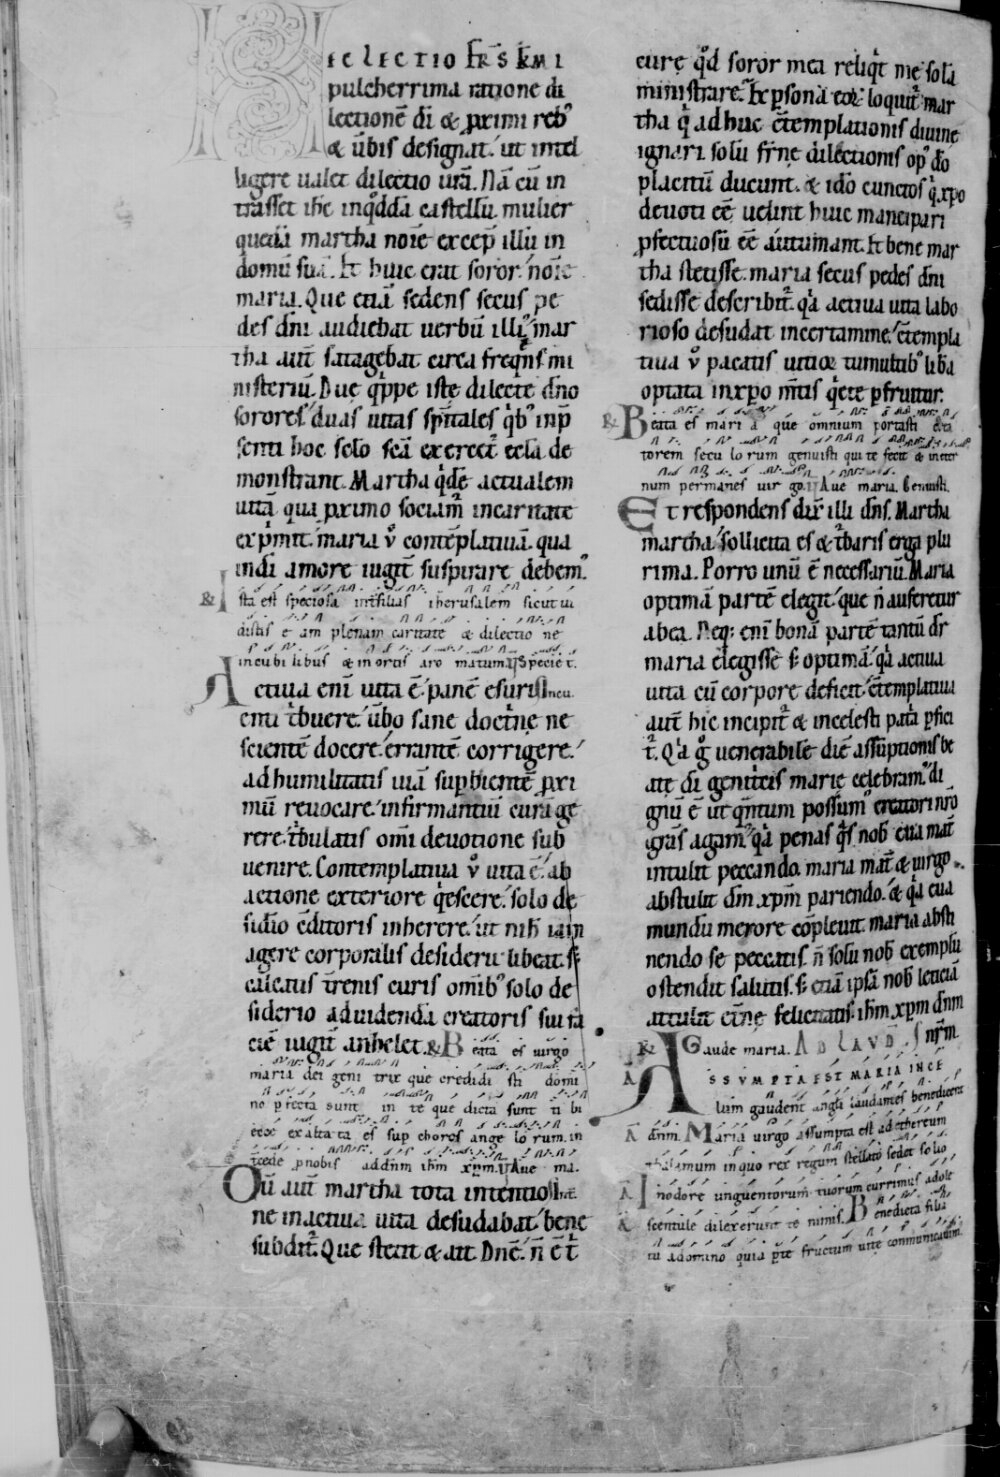 HEC LECTIO FR̅S K̅MI
pulcherrima ratione di
lectione̅ di̅ & p̲roximi reb᷒
& u̅bis designat᷒. ut intel
ligere ualet dilectio ur̅a. Na̅ cu̅ in
trasset ih̅c inq᷒dda̅ castellu̅. mulier
queda̅ martha no̅i̅e excep̲ illu̅ in
domu̅ sua̅. Et huic erat soror. no̅i̅e
maria. Que etia̅ sedens secus pe
des dn̅i audiebat uerbu̅ illi᷒. mar
tha aut̅ satagebat circa freq̅ns mi
nisteriu̅. Due q̇ppe istę dilecte dn̅o
sorores. duas uitas sp̅itales q̇b᷒ in p̲
senti hoc sclo sc̅a exercet̅ eccl̅a de
monstrant. Martha q̇de̅ actualem
uita̅ qua p̲roximo sociam᷒ in caritate
exp̅mit. maria u̇ conte̅platiua̅. qua
in di̅ amore iugit̅ suspirare debem᷒.
℟ Ista est speciosa int̅ filias iherusalem sicut ui
distis e am plenam caritate & dilectio ne
in cubi libus & in ortis aro matum. V Specie t.
Actiua eni̅ uita e̅. pane̅ esuri In cu.
enti t̅buere. u̅bo sane doct̅nę ne
sciente̅ docere. errante̅ corrigere.
ad humilitatis uia̅ sup̲biente̅ p̲roxi
mu̅ reuocare. infirmantiu̅ cura̅ ge
rere. t̅bulatis om̅i deuotione sub
uenire. Contemplatiua u̇ uita e̅. ab
actione exteriore q̇escere. solo de
sidio c̅ditoris inherere. ut nih̅ iam
agere corporalis desiderii libeat. s̅
calcatis t̅renis curis om̅ib᷒ solo de
siderio ad uidenda̅ creatoris sui fa
cie̅ iugit̅ anhelet. ℟ Beata es uirgo
maria dei geni trix que credidi sti domi
no p̲fecta sunt in te que dicta sunt ti bi
ecce exalta ta es sup̲ choros ange lo rum. in
t̅cede p̲ nobis ad dn̅m ih̅m xp̅m. V Aue ma.
Cu̅ aut̅ martha tota intentio Int̅.
ne in actiua uita desudabat. bene
subdit᷒. Que stetit & ait. Dn̅e. n̅ e̅ t᷒
curę q᷒d soror mea reliq̇t me sola̅
ministrare. Ex p̲sona eo᷒r loquit᷒ mar
tha q̇ adhuc c̅templationis diuine
ignari solu̅ fr̅ne dilectionis op᷒ d̅o
placitu̅ ducunt. & ido̅ cunctos q̇ xp̅o
deuoti ee̅ uelint huic mancipari
p̲fectuosu̅ ee̅ autumant. Et bene mar
tha stetisse. maria secus pedes dn̅i
sedisse describit᷒. q̇a actiua uita labo
rioso desudat in certamine. c̅templa
tiua u̇ pacatis uitioɤ tumultib᷒ lib̅a
optata in xp̅o m̅tis q̇ete p̲fruitur.
℟ Beata es mari a que omnium portasti crea
torem secu lo rum genuisti qui te fecit & in eter
num permanes uir go. V Aue maria. Genuisti.
Et respondens dix᷒ illi dn̅s. Martha
martha. sollicita es & t̅baris erga plu
rima. Porro unu̅ e̅ necessariu̅. Maria
optima̅ parte̅ elegit. que n̅ auferetur
ab ea. Neq; eni̅ bona̅ parte̅ tantu̅ dr̅
maria elegisse s̅ optima̅. q̇a actiua
uita cu̅ corpore deficit. c̅templatiua
aut̅ hic incipit᷒ & in celesti pat̅a p̲fici
t᷒. Q̇a g᷒ uenerabile̅ die̅ assu̅ptionis be
atę di̅ genit̅cis marię celebram᷒. di
gnu̅ e̅ ut q̅ntum possum᷒ creatori nr̅o
gra̅s agam᷒. q̇a penas q̅s nob̅ eua mat̅
intulit peccando. maria mat̅ & uirgo
abstulit dn̅m xp̅m pariendo. & q̇a eua
mundu̅ merore co̅pleuit. maria absti
nendo se peccatis. n̅ solu̅ nob̅ exemplu̅
ostendit salutis. s̅ etia̅ ipsa̅ nob̅ leticia̅
attulit et̅ne felicitatis. ih̅m xp̅m dn̅m
℟ Gaude maria. AD LAUD. nr̅m.
A ASSUMPTA EST MARIA IN CE
lum gaudent angl̅i laudantes benedicunt
A dn̅m. Maria uirgo assumpta est ad ethereum
thalamum in quo rex regum stellato sedet solio
A In odore unguentorum tuorum currimus adole
A scentule dilexerunt te nimis. Benedicta filia
tu a domino quia p̲ te fructum uitę communicauim.